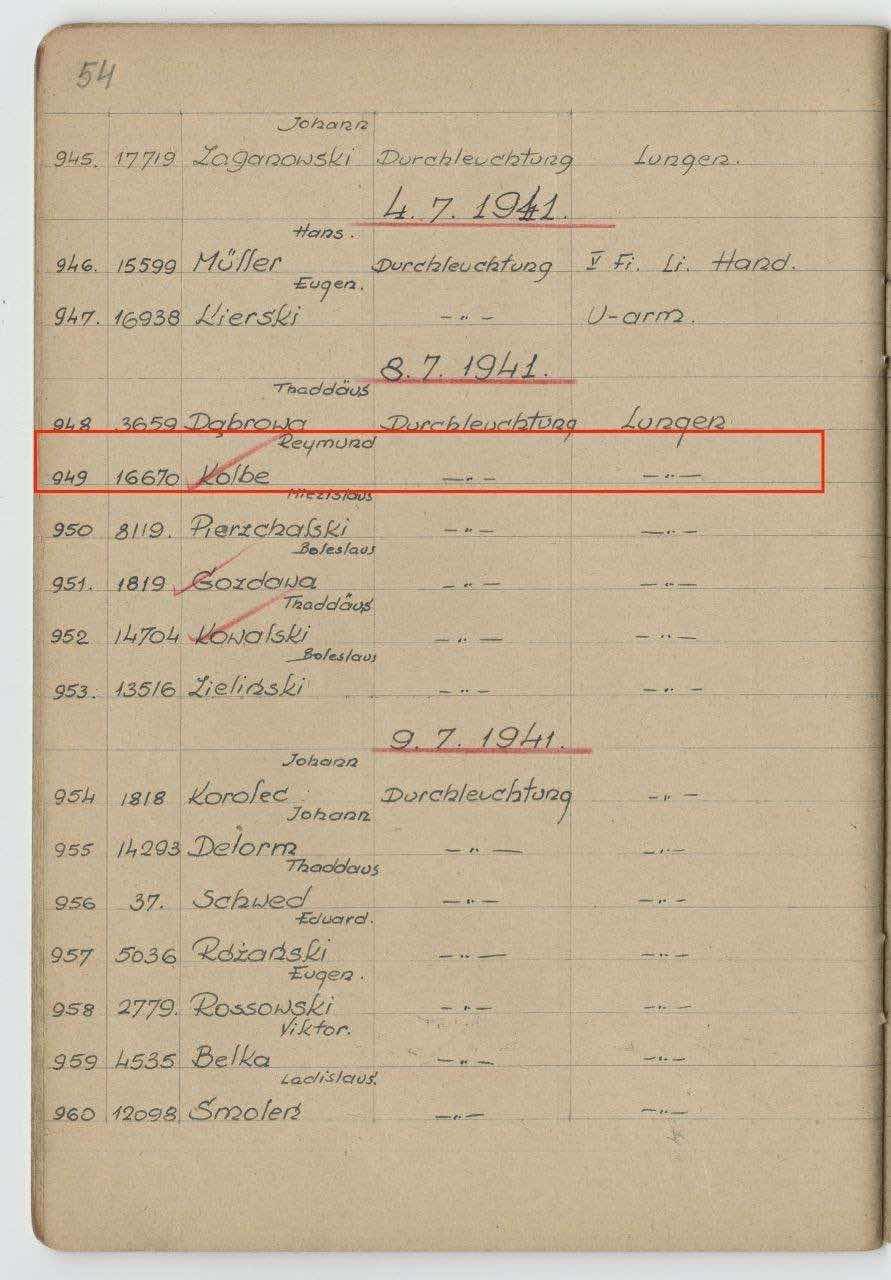 54
Johann
945. 17719 Zaganowski Durchleuchtung Lungen.
4. 7. 1941.
Hans.
946. 15599 Müller Durchleuchtung V Fi. Li. Hand.
Eugen.
947. 16938 Kierski —"— U-arm.
8. 7. 1941.
Thaddäus
948 3659 Dąbrowa Durchleuchtung Lungen
Reymund
949 16670 Kolbe —"— —"—
Miezislaus
950 8119. Pierzchalski —"— —"—
Boleslaus
951. 1819 Gozdawa —"— —"—
Thaddäus
952 14704 Kowalski —"— —"—
Boleslaus
953. 13516 Zieliński —"— —"—
9. 7. 1941.
Johann
954 1818 Korolec Durchleuchtung —"—
Johann
955 14293 Delorm —"— —"—
Thaddaus
956 37. Schwed —"— —"—
Eduard.
957 5036 Różański —"— —"—
Eugen.
958 2779. Rossowski —"— —"—
Viktor.
959 4535 Belka —"— —"—
Ladislaus.
960 12098 Smoleń —"— —"—